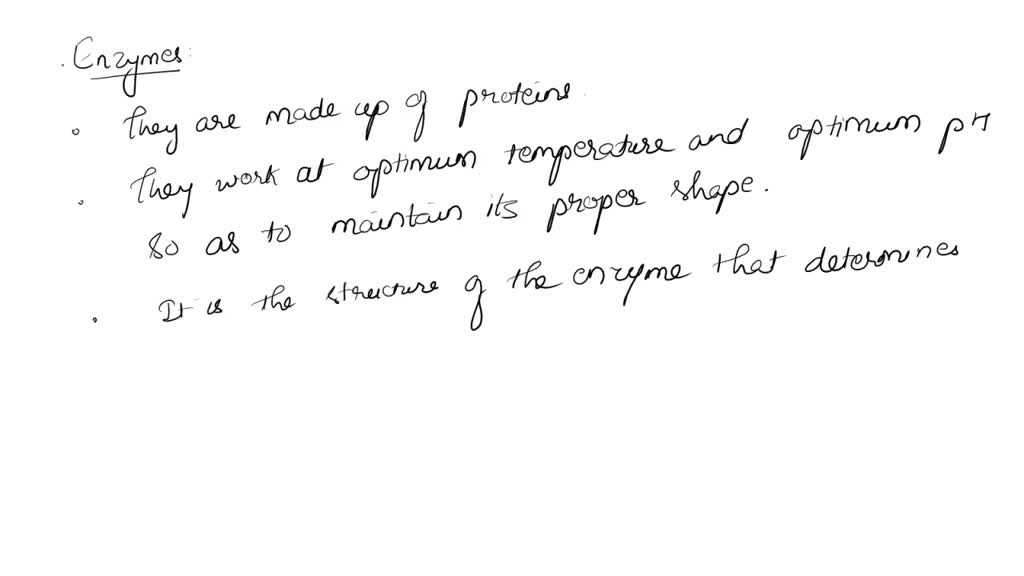 . Enzymes:
• They are made up of proteins.
• They work at optimum temperature and optimum pH
so as to maintain its proper shape.
• It is the structure of the enzyme that determines